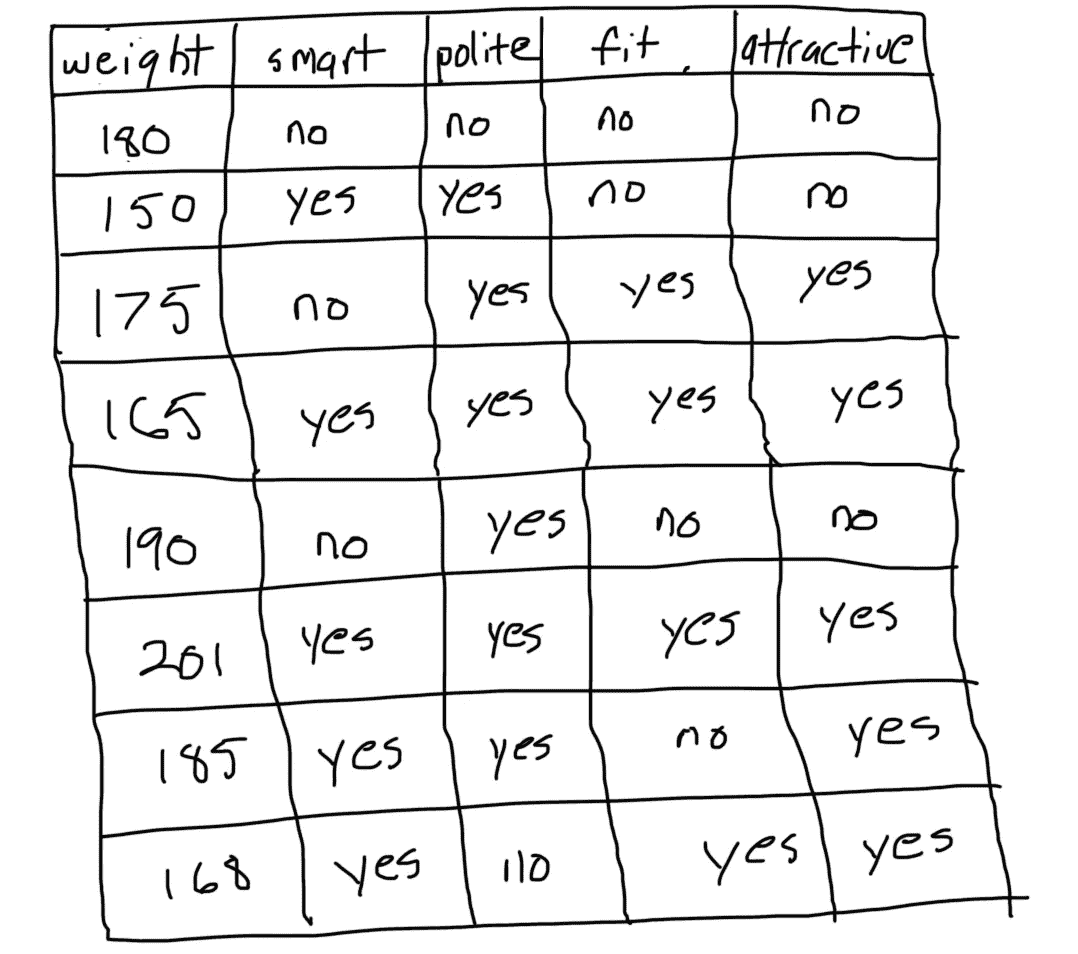 weight smart polite fit attractive
180 no no no no
150 yes yes no no
175 no yes yes yes
165 yes yes yes yes
190 no yes no no
201 yes yes yes yes
185 yes yes no yes
168 yes no yes yes